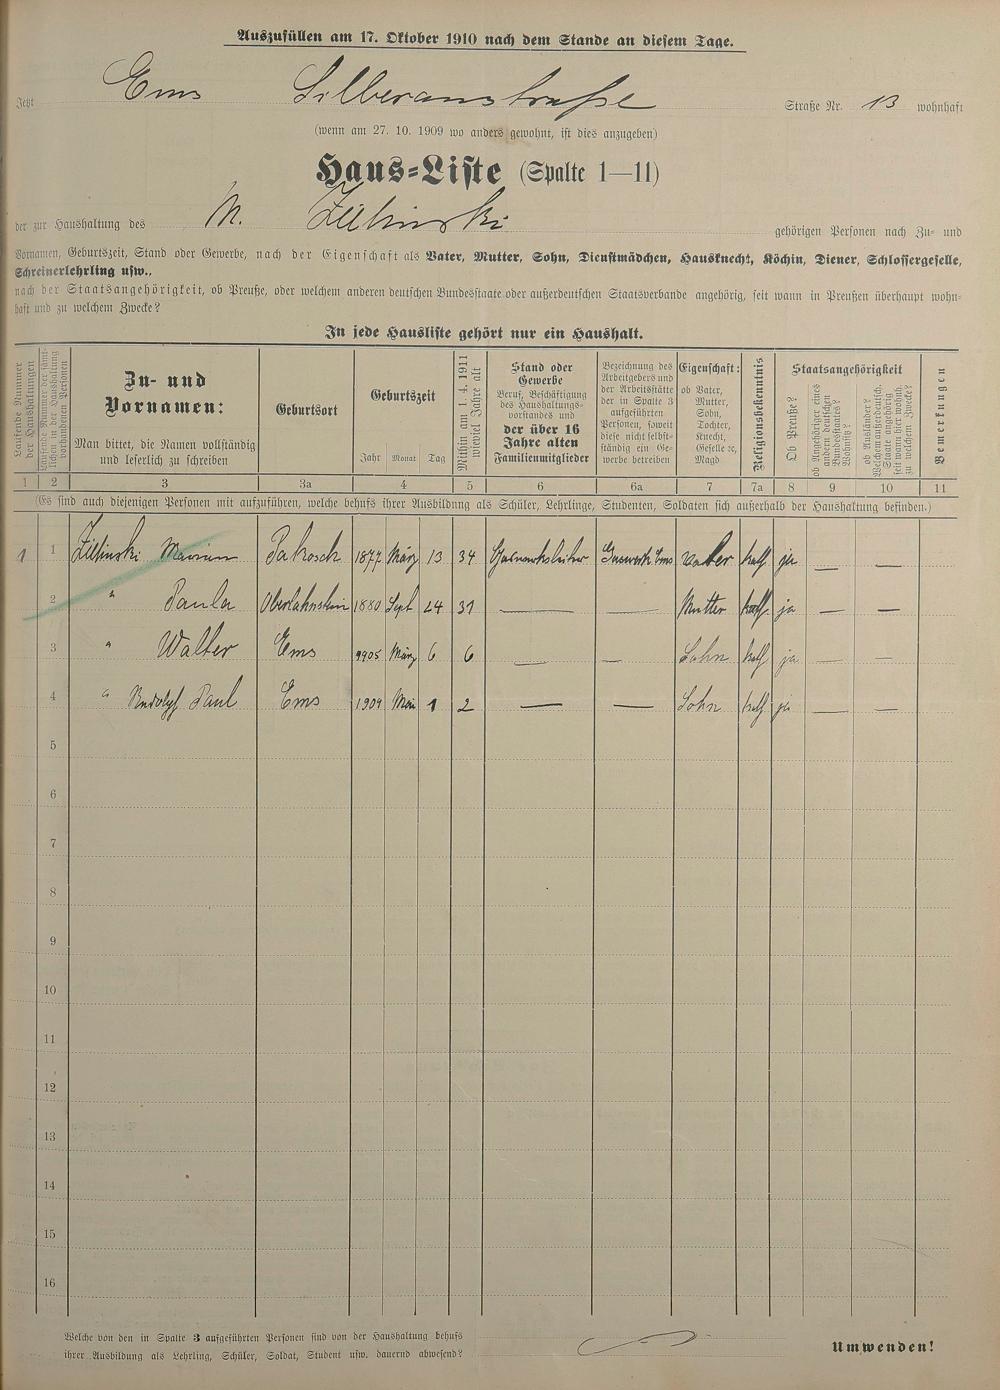 Auszufüllen am 17. Oktober 1910 nach dem Stande an diesem Tage.
Jetzt Ems Silberaustraße Straße Nr. 13 wohnhaft
(wenn am 27. 10. 1909 wo anders gewohnt, ist dies anzugeben)
Haus=Liste (Spalte 1—11)
der zur Haushaltung des M. Zielinski gehörigen Personen nach Zu- und
Vornamen, Geburtszeit, Stand oder Gewerbe, nach der Eigenschaft als Vater, Mutter, Sohn, Dienstmädchen, Hausknecht, Köchin, Diener, Schlossergeselle,
Schreinerlehrling usw.,
nach der Staatsangehörigkeit, ob Preuße, oder welchem anderen deutschen Bundesstaate oder außerdeutschen Staatsverbande angehörig, seit wann in Preußen überhaupt wohn-
haft und zu welchem Zwecke?
In jede Hausliste gehört nur ein Haushalt.
Laufende Nummer
der Haushaltungen
Laufende Nummer der sämt-
lichen in der Haushaltung
vorhandenen Personen
Zu- und
Vornamen:
Man bittet, die Namen vollständig
und leserlich zu schreiben
Geburtsort
Geburtszeit
Jahr Monat Tag
Mithin am 1. 4. 1911
wieviel Jahre alt
Stand oder
Gewerbe
Beruf, Beschäftigung
des Haushaltungs-
vorstandes und
der über 16
Jahre alten
Familienmitglieder
Bezeichnung des
Arbeitgebers und
der Arbeitsstätte
der in Spalte 3
aufgeführten
Personen, soweit
diese nicht selbst-
ständig ein Ge-
werbe betreiben
Eigenschaft:
ob Vater,
Mutter,
Sohn,
Tochter,
Knecht,
Geselle ꝛc,
Magd
Religionsbekenntnis
Staatsangehörigkeit
Ob Preuße?
ob Angehöriger eines
andern deutschen
Bundesstaates?
Wohnsitz?
ob Ausländer?
Welchem außerdeutsch.
Staate angehörig
seit wann hier wohnh.
zu welchem Zwecke?
Bemerkungen
1 2 3 3a 4 5 6 6a 7 7a 8 9 10 11
(Es sind auch diejenigen Personen mit aufzuführen, welche behufs ihrer Ausbildung als Schüler, Lehrlinge, Studenten, Soldaten sich außerhalb der Haushaltung befinden.)
1 1 Zielinski Marian Pakosch 1877 März 13 34 Gaswerksleiter Gaswerk Ems Vater kath ja — —
2 " Paula Oberlahnstein 1880 Sept 24 31 — — Mutter kath ja — —
3 " Walter Ems 1905 März 6 6 — — Sohn kath ja — —
4 " Rudolf Paul Ems 1909 Mai 1 2 — — Sohn kath ja — —
5
6
7
8
9
10
11
12
13
14
15
16
Welche von den in Spalte 3 aufgeführten Personen sind von der Haushaltung behufs
ihrer Ausbildung als Lehrling, Schüler, Soldat, Student usw. dauernd abwesend?
Umwenden!